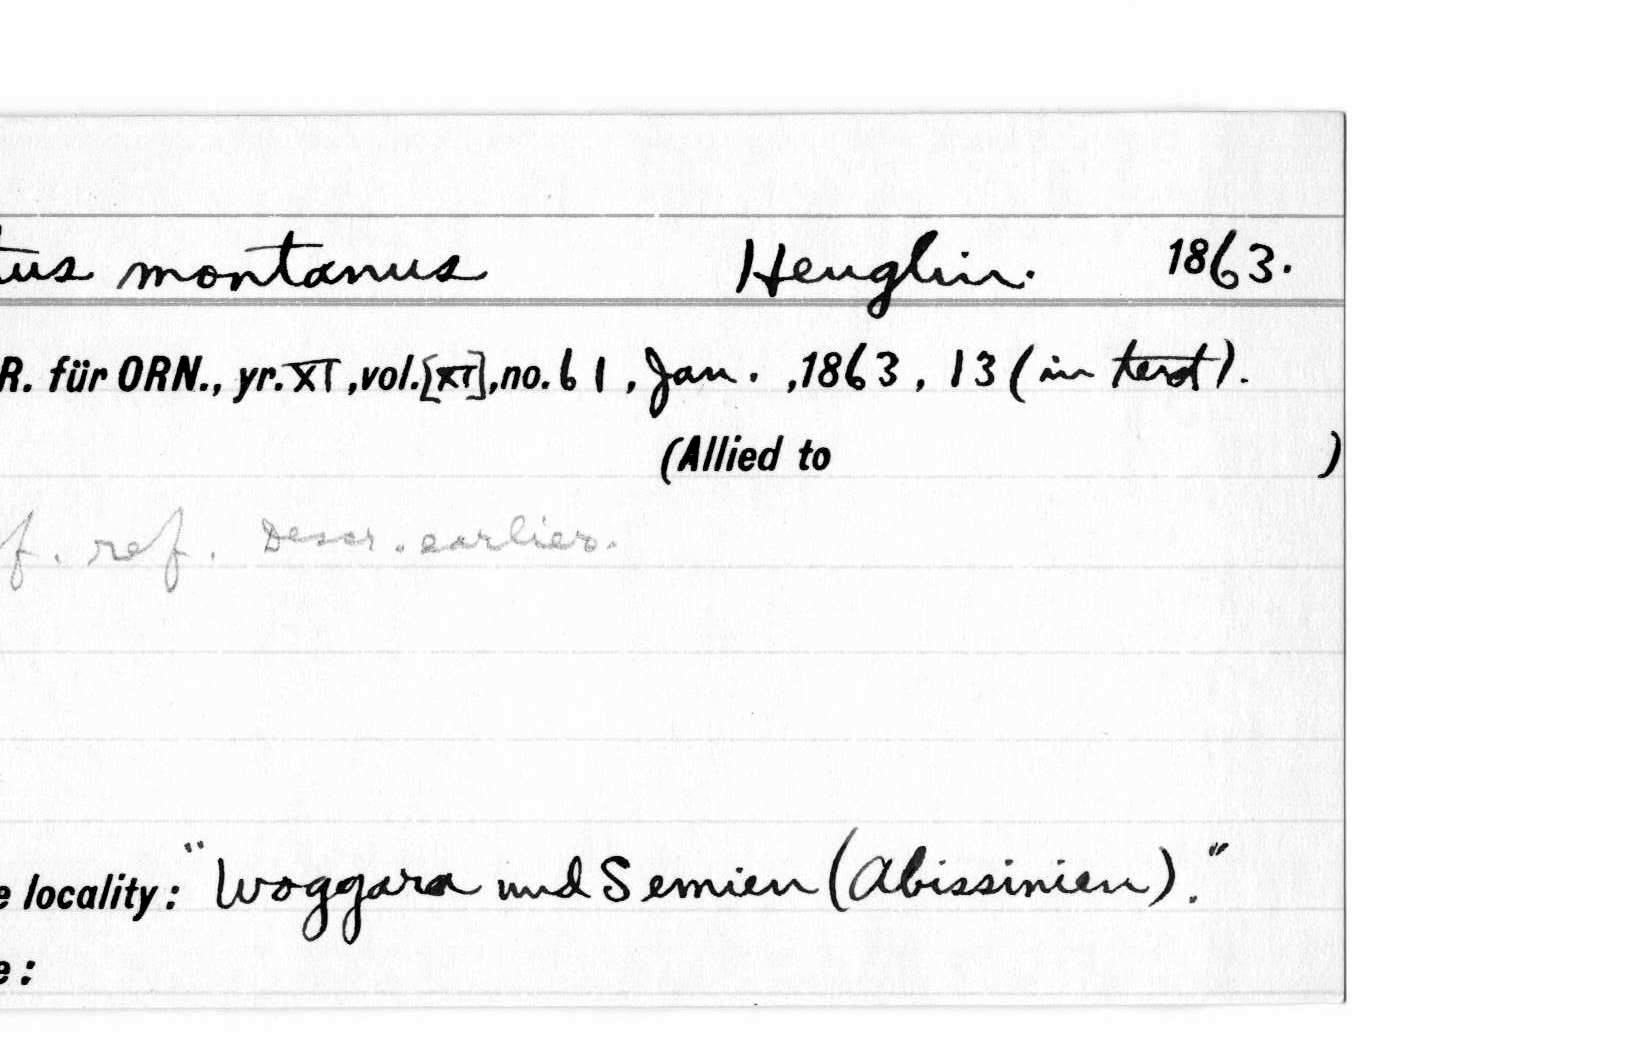 tus montanus Heuglin. 1863.
R. für ORN., yr. XI, vol. [XI], no. 61, Jan., 1863, 13 (in text).
(Allied to )
f. ref. Descr. earlier.
e locality: "Woggara und Semien (Abissinien)."
e: